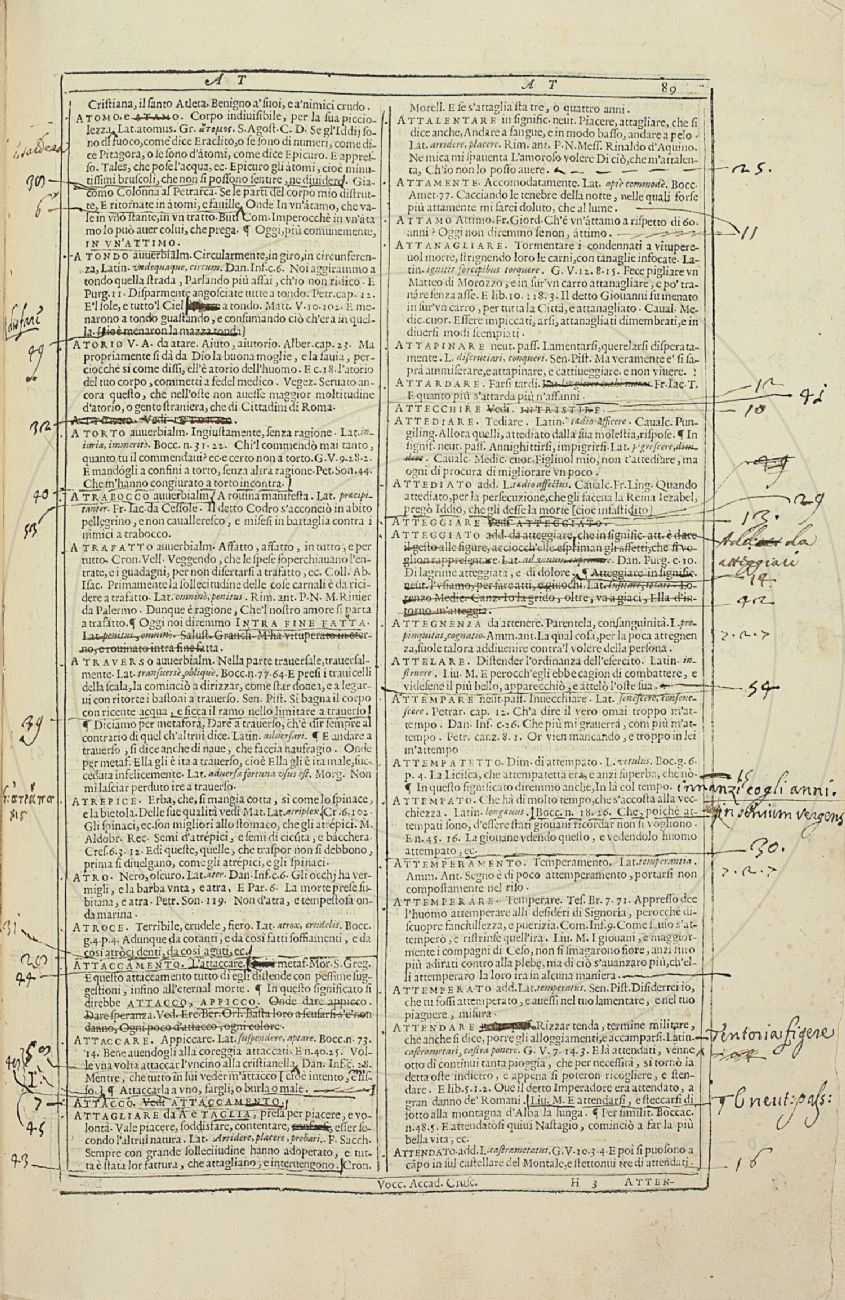 A T
A T
89
Cristiana, il santo Atleta. Benigno a' suoi, e a'nimici crudo.
ATOMO, e ATAMO. Corpo indiuisibile, per la sua piccio-
lezza. Lat. atomus. Gr. ἄτομος. S. Agost. C. D. Se gl'Iddij so-
no di fuoco, come dice Eraclito, o se sono di numeri, come di-
ce Pitagora, o se sono d'átomi, come dice Epicuro. E appres-
so. Tales, che pose l'acqua, ec. Epicuro gli átomi, cioè minu-
tissimi bruscoli, che non si possono sentire, ne diuidere. Gia-
como Colonna al Petrarca. Se le parti del corpo mio distrut-
te, E ritornate in átomi, e fauille. Onde In vn'átamo, che va-
le in vno stante, in vn tratto. But. Com. Imperocchè in vn'áta
mo lo può auer colui, che prega. ¶ Oggi, più comunemente,
IN VN'ATTIMO.
ATONDO auuerbialm. Circularmente, in giro, in circunferen-
za, Latin. vndequaque, circum. Dan. Inf. c. 6. Noi aggirammo a
tondo quella strada, Parlando più assai, ch'io non ridico. E
Purg. 11. Disparmente angosciate tutte a tondo. Petr. cap. 12.
E'l sole, e tutto'l Ciel a tondo. Matt. V. 10. 102. E me-
narono a tondo guastando, e consumando ciò ch'era in quel-
la. [cioè menaron la mazza tonda]
ATORIO V. A. da atare. Aiuto, aiutorio. Alber. cap. 23. Ma
propriamente si dà da Dio la buona moglie, e la sauia, per-
ciocchè si come dissi, ell'è atorio dell'huomo. E c. 18. l'atorio
del tuo corpo, commetti a fedel medico. Vegez. Seruato an-
cora questo, che nell'oste non auesse maggior moltitudine
d'atorio, o gente straniera, che di Cittadini di Roma.
ATORTO auuerbialm. Ingiustamente, senza ragione. Lat. in-
iuria, immeritò. Bocc. n. 31. 22. Chi'l commendò mai tanto,
quanto tu il commendaui? ec. e certo non a torto. G. V. 9. 28. 2.
E mandógli a confini a torto, senza altra ragione. Pet. Son. 44.
Che m'hanno congiurato a torto incontra.
A TRABOCCO auuerbialm. A rouina manifesta. Lat. præcipi-
tanter. Fr. Iac. da Cessole. Il detto Codro s'acconciò in abito
pellegrino, e non caualleresco, e misesi in battaglia contra i
nimici a trabocco.
A TRAFATTO auuerbialm. Affatto, affatto, in tutto, e per
tutto. Cron. Vell. Veggendo, che le spese soperchiauano l'en-
trate, e i guadagni, per non disertarsi a trafatto, ec. Coll. Ab.
Isac. Primamente la sollecitudine delle cose carnali è da rici-
dere a trafatto. Lat. omninò, penitus. Rim. ant. P. N. M. Rinier
da Palermo. Dunque è ragione, Che'l nostro amore si parta
a trafatto. ¶ Oggi noi diremmo INTRA FINE FATTA.
Lat. penitus, omninò. Salust. Granch. M'ha vituperato in eter-
no, e rouinato infra fine fatta.
A TRAVERSO auuerbialm. Nella parte trauersale, trauersal-
mente. Lat. transuersè, obliquè. Bocc. n. 77. 64. E presi i trauicelli
della scala, la cominciò a dirizzar, come star douea, e a legar-
ui con ritorte i bastoni a trauerso. Sen. Pist. Si bagna il corpo
con recente acqua, e ficca il ramo nello limitare a trauerso]
¶ Diciamo per metafora, Dare a trauerso, ch'è dir sempre al
contrario di quel ch'altrui dice. Latin. aduersari. ¶ E andare a
trauerso, si dice anche di naue, che faccia naufragio. Onde
per metaf. Ella gli è ita a trauerso, cioè Ella gli è ita male, suc-
ceduta infelicemente. Lat. aduersa fortuna vsus est. Morg. Non
mi lasciar perduto ire a trauerso.
ATREPICE. Erba, che, si mangia cotta, si come lo spinace,
e la bietola. Delle sue qualità vedi Mat. Lat. atriplex. Cr. 6. 102.
Gli spinaci, ec. son migliori allo stomaco, che gli atrépici. M.
Aldobr. Rec. Semi d'atrépici, e semi di cicuta, e bácchera.
Cres. 6. 3. 12. E di queste, quelle, che traspor non si debbono,
prima si diuelgano, come gli atrépici, e gli spinaci.
ATRO. Nero, oscuro. Lat. ater. Dan. Inf. c. 6. Gli occhi ha ver-
migli, e la barba vnta, e atra. E Par. 6. La morte prese su-
bitana, e atra. Petr. Son. 119. Non d'atra, e tempestosa on-
da marina.
ATROCE. Terribile, crudele, fiero. Lat. atrox, crudelis. Bocc.
g. 4. p. 4. Adunque da cotanti, e da così fatti soffiamenti, e da
così atróci denti, da così aguti, ec.
ATTACCAMENTO. L'attaccare. metaf. Mor. S. Greg.
E questo attaccamento tutto dì egli distende con pessime sug-
gestioni, infino all'eternal morte. ¶ In questo significato si
direbbe ATTACCO, APPICCO. Onde dare appicco.
Dare speranza. Ved. Ero Ber. Orl. Basta loro a scusarsi s'e' non
danno, Ogni poco d'attacco, ogni colore.
ATTACCARE. Appiccare. Lat. suspendere, aptare. Bocc. n. 73.
14. Bene auendogli alla coreggia attaccati. E n. 40. 25. Vol-
le vna volta attaccar l'vncino alla cristianella. Dan. Inf. c. 28.
Mentre, che tutto in lui veder m'attacco [cioè intento, e fis-
so.] ¶ Attaccarla a vno, fargli, o burla o male.
ATTACCO. Vedi ATTACCAMENTO.
ATTAGLIARE da A e TAGLIA, presa per piacere, e vo-
lontà. Vale piacere, soddisfare, contentare, esser se-
condo l'altrui natura. Lat. Arridere, placere, probari. F. Sacch.
Sempre con grande sollecitudine hanno adoperato, e tut-
ta è stata lor fattura, che attagliano, e interuengono. Cron.
Morell. E se s'attaglia sta tre, o quattro anni.
ATTALENTARE in signific. neut. Piacere, attagliare, che si
dice anche, Andare a sangue, e in modo basso, andare a pelo.
Lat. arridere, placere. Rim. ant. P. N. Mess. Rinaldo d'Aquino.
Ne mica mi spauenta L'amoroso volere Di ciò, che m'attalen-
ta, Ch'io non lo posso auere.
ATTAMENTE. Accomodatamente. Lat. aptè commodè. Bocc.
Amet. 77. Cacciando le tenebre della notte, nelle quali forse
più attamente mi sarei doluto, che al lume.
ATTAMO Attimo. Fr. Giord. Ch'è vn'áttamo a rispetto di 60.
anni? Oggi non diremmo senon, áttimo.
ATTANAGLIARE. Tormentare i condennati a vitupere-
uol morte, strignendo loro le carni, con tanaglie infocate. La-
tin. ignitis forcipibus torquere. G. V. 12. 8. 15. Fece pigliare vn
Matteo di Morozzo, e in su vn carro attanagliare, e po' tra-
nare senza asse. E lib. 10. 118. 3. Il detto Giouanni fu menato
in su vn carro, per tutta la Città, e attanagliato. Caual. Me-
dic. cuor. Essere impiccati, arsi, attanagliati dimembrati, e in
diuersi modi scempiati.
ATTAPINARE neut. pass. Lamentarsi, querelarsi disperata-
mente. L. discruciari, conqueri. Sen. Pist. Ma veramente e' si sa-
prà ammiserare, e attapinare, e cattiueggiare, e non viuere.
ATTARDARE. Farsi tardi. Fr. Iac. T.
E quanto più s'attarda più n'affanni.
ATTECCHIRE Vedi. INTRISTIRE.
ATTEDIARE. Tediare. Latin. tædio afficere. Caualc. Pun-
giling. Allora quelli, attediato dalla sua molestia, rispose. ¶ In
signif. neut. pass. Annighittirsi, impigrirsi. Lat. pigrescere,
Caualc. Medic. cuor. Figliuol mio, non t'attediare, ma
ogni dì procura di migliorare vn poco.
ATTEDIATO add. L. tædio affectus. Caualc. Fr. Ling. Quando
attediato, per la persecuzione, che gli faceua la Reina Iezabel,
pregò Iddio, che gli desse la morte [cioè infastidito]
ATTEGGIARE Vedi ATTEGGIATO.
ATTEGGIATO add. da atteggiare, che in signific. att. è dare
il gesto alle figure, acciocch'elle esprimano gli affetti, che si vo-
glion rappresentare. Lat. Dan. Purg. c. 10.
Di lagrime atteggiata, e di dolore. ¶ Atteggiare in signific.
torno m'atteggia.
ATTEGNENZA da attenere. Parentela, consanguinità. L. pro-
pinquitas, cognatio. Amm. ant. La qual cosa, per la poca attegnen
za, suole talora addiuenire contra'l volere della persona.
ATTELARE. Distender l'ordinanza dell'esercito. Latin. in-
struere. Liu. M. E perocch'egli ebbe cagion di combattere, e
videsene il più bello, apparecchiò, e attelò l'oste sua.
ATTEMPARE neut. pass. Inuecchiare. Lat. senescere, consene-
scere. Petrar. cap. 12. Ch'a dire il vero omai troppo m'at-
tempo. Dan. Inf. c. 26. Che più mi grauerrà, com più m'at-
tempo. Petr. canz. 8. 1. Or vien mancando, e troppo in lei
m'attempo
ATTEMPATETTO. Dim. di attempato. L. vetulus. Boc. g. 6.
p. 4. La Licisca, che attempatetta era, e anzi superba, che nò.
¶ In questo significato diremmo anche, In là col tempo.
ATTEMPATO. Che ha di molto tempo, che s'accosta alla vec-
chiezza. Latin. longæuus. [Bocc. n. 18. 26. Che, poichè at-
tempati sono, d'essere stati giouani ricordar non si vogliono.
E n. 45. 16. La giouane vdendo questo, e vedendolo huomo
attempato, ec.
ATTEMPERAMENTO. Temperamento. Lat. temperantia.
Amm. Ant. Segno è di poco attemperamento, portarsi non
compostamente nel riso.
ATTEMPERARE. Temperare. Tes. Br. 7. 71. Appresso dee
l'huomo attemperare alli desidéri di Signoria, perocche di-
scuopre fanchullezza, e puerizia. Com. Inf. 9. Come Iunio s'at-
temperò, e ristrinse quell'ira. Liu. M. I giouani, e maggior-
mente i compagni di Ceso, non si smagarono fiore, anzi furo
più adirati contro alla plebe, ma di ciò s'auanzaro più, ch'el-
li attemperaro la loro ira in alcuna maniera.
ATTEMPERATO add. Lat. temperatus. Sen. Pist. Disiderrei io,
che tu fossi attemperato, e auessi nel tuo lamentare, e nel tuo
piagnere, misura.
ATTENDARE Rizzar tenda, termine militare,
che anche si dice, porre gli alloggiamenti, e accamparsi. Latin.
castrametari, castra ponere. G. V. 7. 14. 3. E là attendati, venne
otto dì continui tanta pioggia, che per necessità, si tornò la
detta oste indietro, e appena si poteron ricogliere, e sten-
dare. E lib. 5. 1. 2. Oue il detto Imperadore era attendato, a
gran danno de' Romani. [Liu. M. E attendarsi, e steccarsi di
sotto alla montagna d'Alba la lunga. ¶ Per similit. Boccac.
n. 48. 5. E attendatosi quiui Nastagio, cominciò a far la più
bella vita, ec.
ATTENDATO add. L. castrametatus. G. V. 10. 3. 4. E poi si puosono a
cápo in sul castellare del Montale, e stettonui tre dì attendati.
Vocc. Accad. Crusc.
H 3
ATTEN-
6
49
32
40
39
31
44
7
45
43
25.
11
12
10
29
13.
da
atteggiare
14
42
54
15
innanzi cogli anni.
in senium vergens
30.
Tentoria figere
¶ E neut: pass:
16